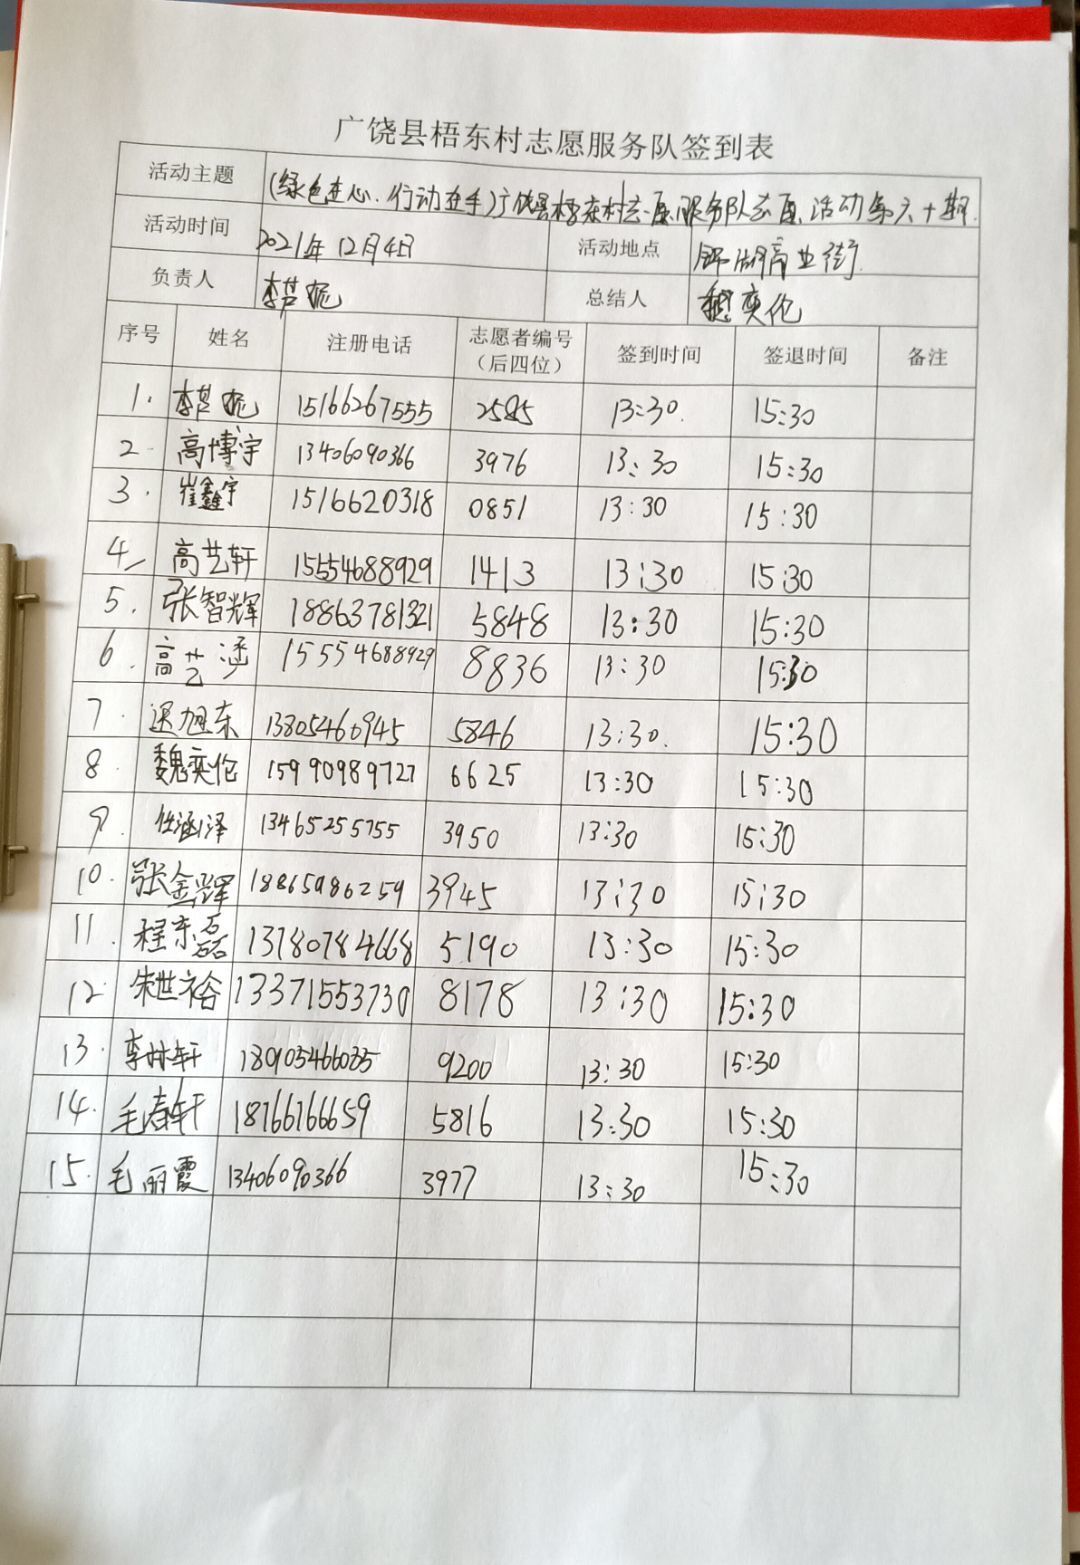 广饶县梧东村志愿服务队签到表
活动主题 (绿色在心.行动在手)广饶县梧东村志愿服务队志愿活动第六十期.
活动时间 2021年12月4日 活动地点 锦湖商业街.
负责人 李芦妮 总结人 魏奕伦
序号 姓名 注册电话 志愿者编号（后四位） 签到时间 签退时间 备注
1. 李芦妮 15166267555 2585 13:30. 15:30
2. 高博宇 13406090366 3976 13:30 15:30
3. 崔鑫宇 1516620318 0851 13:30 15:30
4. 高艺轩 15554688929 1413 13:30 15:30
5. 张智辉 18863781321 5848 13:30 15:30
6. 高艺涵 15554688929 8836 13:30 15:30
7. 旭东 13805460945 5846 13:30. 15:30
8. 魏奕伦 15990989727 6625 13:30 15:30
9. 任涵泽 13465255755 3950 13:30 15:30
10. 张金辉 18865986259 3945 13:30 15:30
11. 程东磊 13780784668 5190 13:30 15:30
12. 朱世裕 13371553730 8178 13:30 15:30
13. 李林轩 18905466085 9200 13:30 15:30
14. 毛春轩 18766166659 5816 13:30 15:30
15. 毛丽霞 13406090366 3977 13:30 15:30